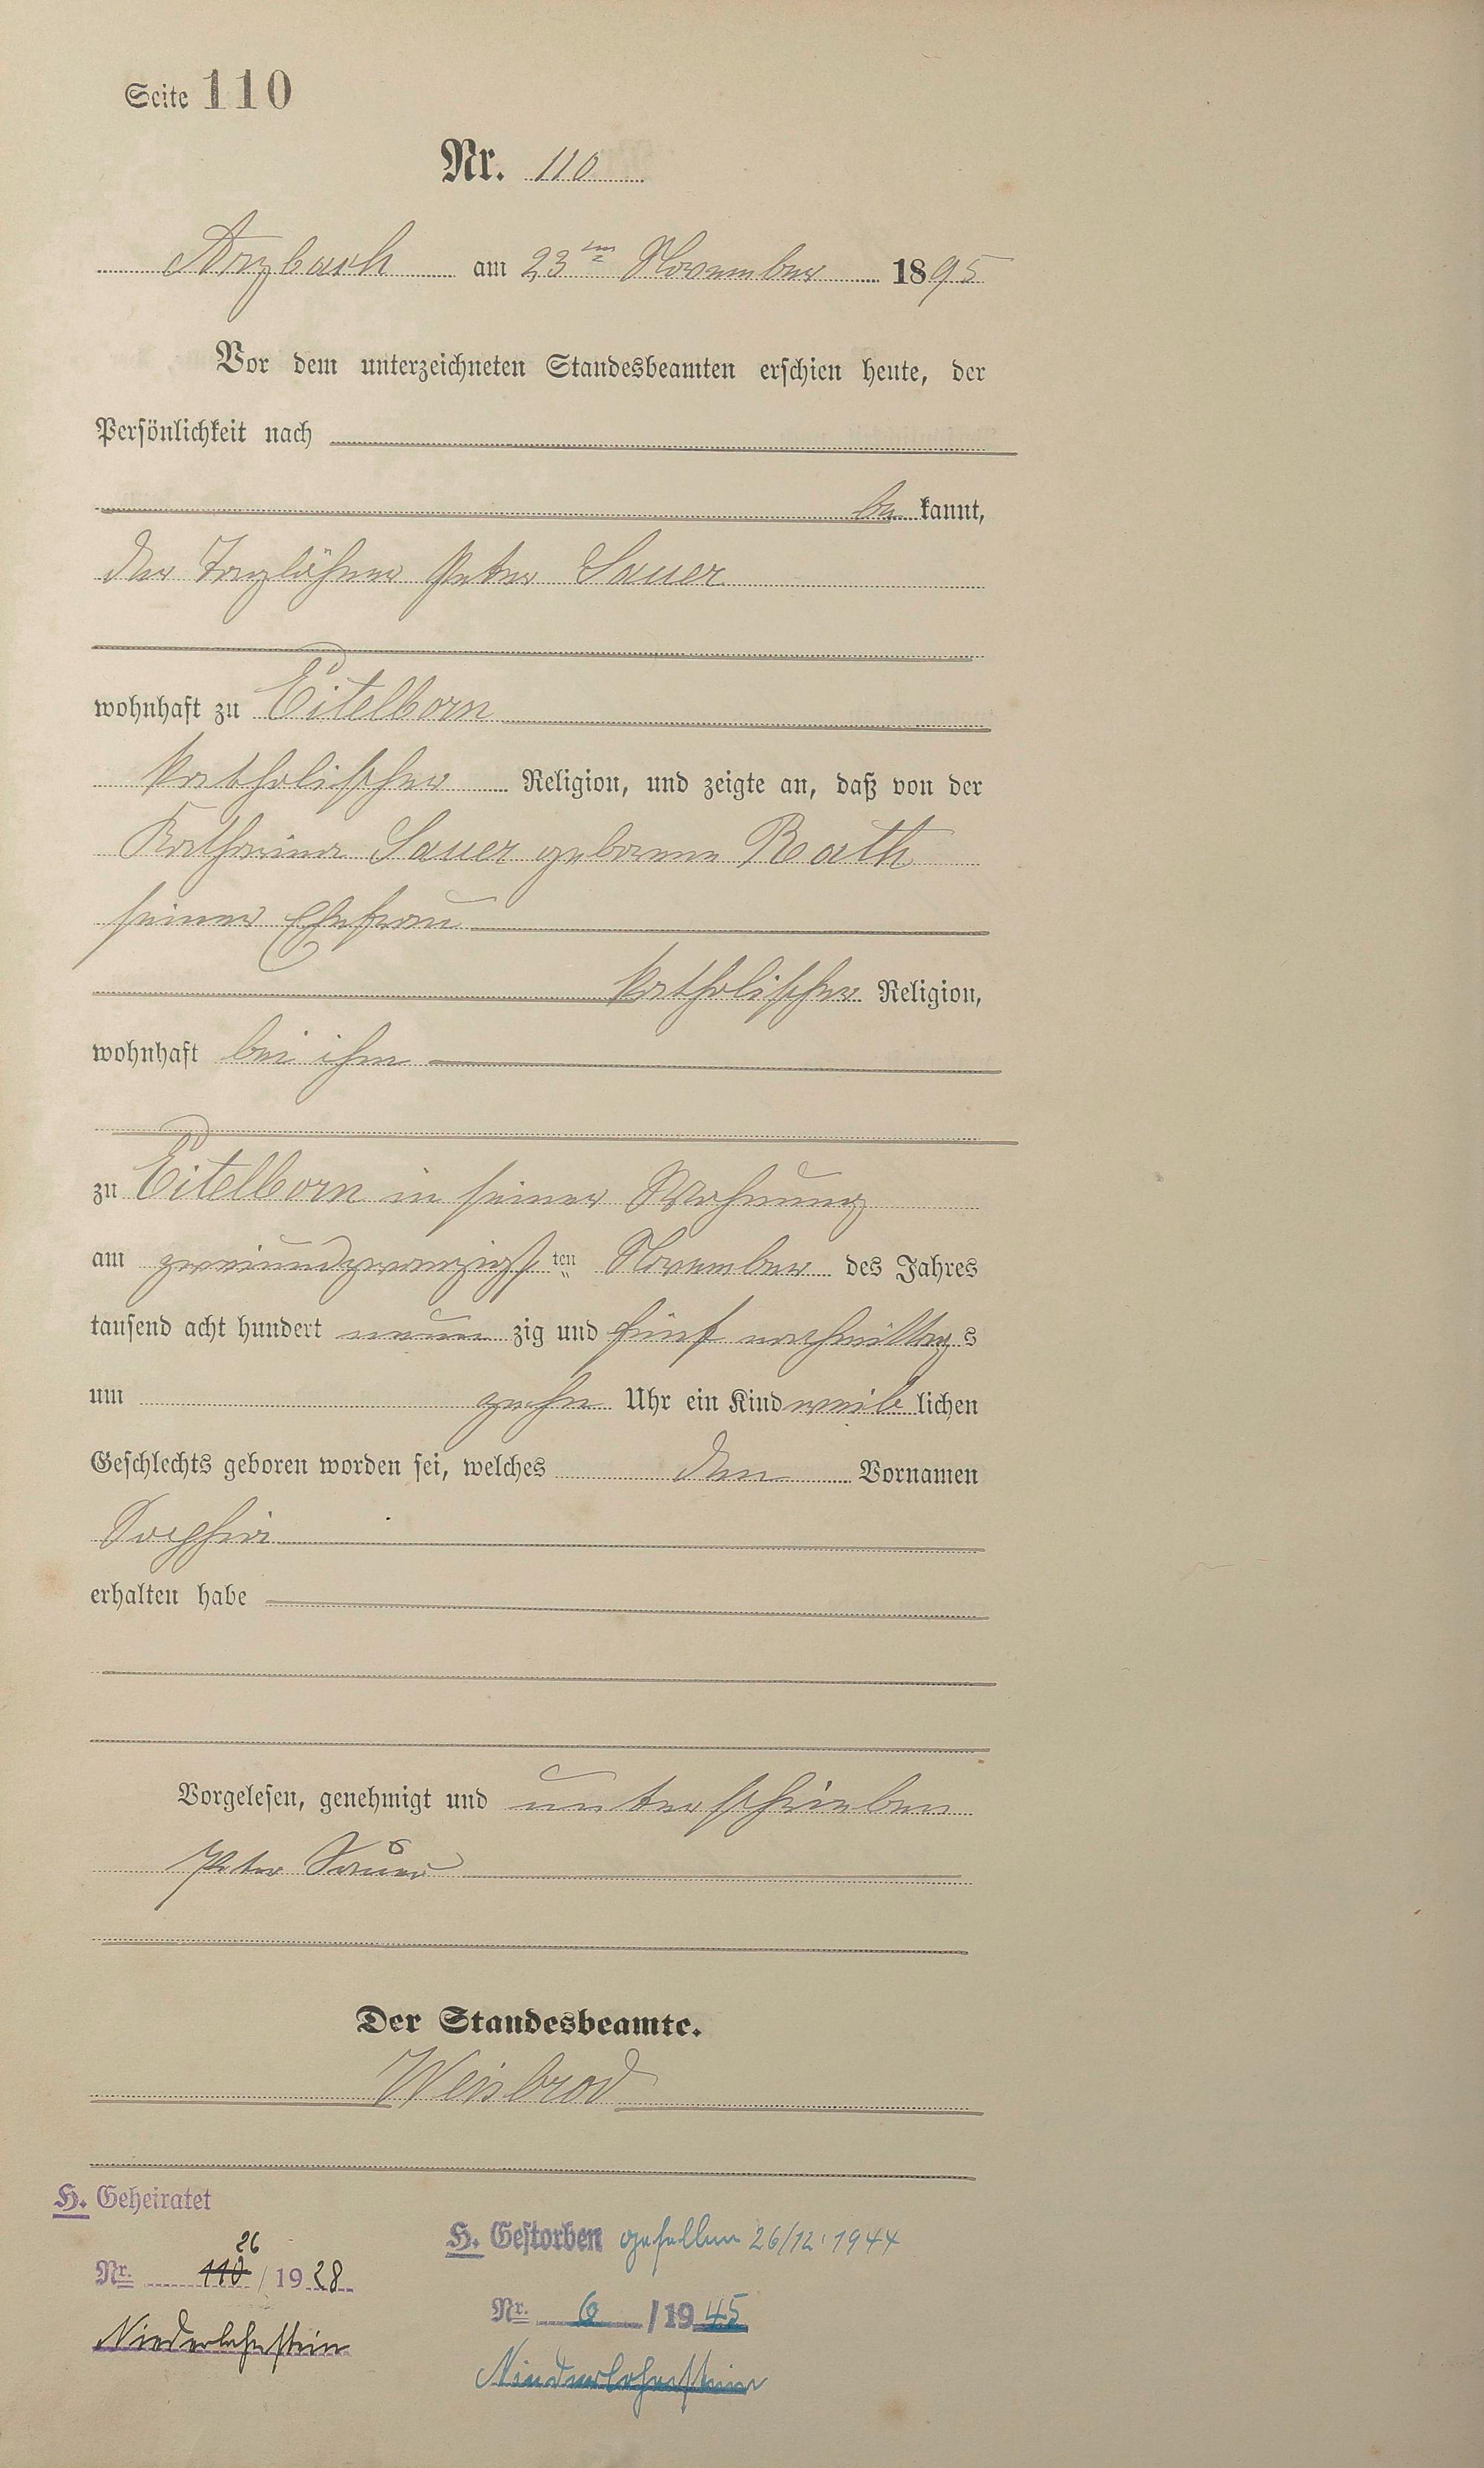 Seite 110
Nr. 110
Arzbach am 23ten November 1895
Vor dem unterzeichneten Standesbeamten erschien heute, der
Persönlichkeit nach
be kannt,
der Taglöhner Peter Sauer
wohnhaft zu Eitelborn
katholischer Religion, und zeigte an, daß von der
Katharina Sauer geborene Rath
seiner Ehefrau
katholischer Religion,
wohnhaft bei ihm
zu Eitelborn in seiner Wohnung
am zweiundzwanzigsten November des Jahres
tausend acht hundert neun zig und fünf nachmittags
um zehn Uhr ein Kind weib lichen
Geschlechts geboren worden sei, welches den Vornamen
Sophia
erhalten habe
Vorgelesen, genehmigt und unterschrieben
Peter Sauer
Der Standesbeamte.
Weisbrod
H. Geheiratet
26
Nr. 110 / 1928
Niederlahnstein
H. Gestorben gefallen 26/12. 1944
Nr. 6 / 1945
Niederlahnstein